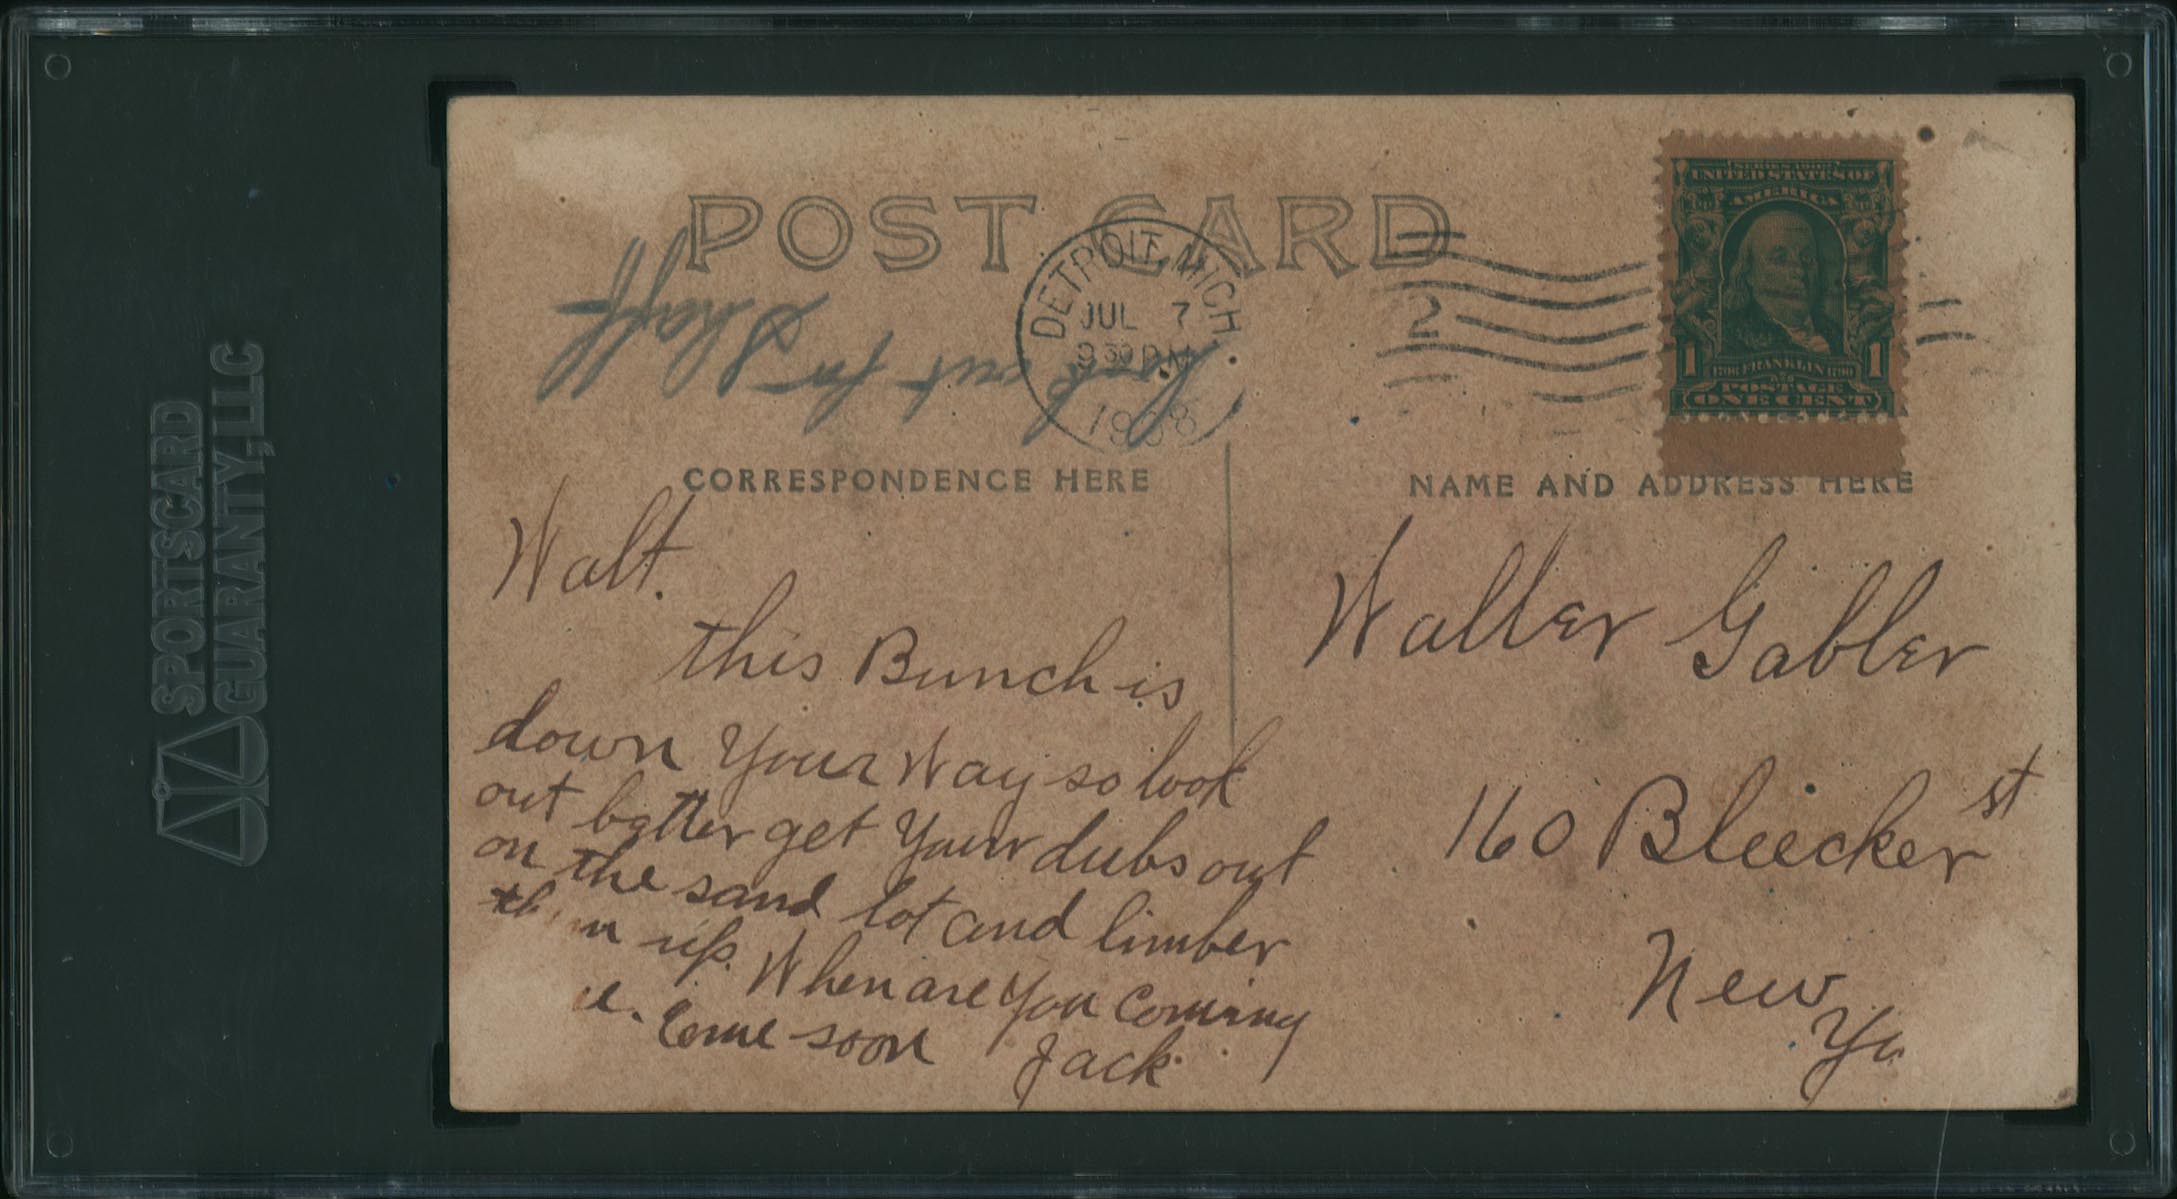 SPORTSCARD
GUARANTY, LLC
POST CARD
DETROIT, MICH
JUL 7
9 30 PM
1908
2
SERIES 1902
UNITED STATES OF
AMERICA
1 1
1706 FRANKLIN 1790
POSTAGE
ONE CENT
look out for Shaff
CORRESPONDENCE HERE
NAME AND ADDRESS HERE
Walt.
this Bunch is
down Your Way so look
out better get Your dubs out
on the sand lot and limber
up. When are You Coming
Come soon Jack
Walter Gabler
160 Bleecker st
New